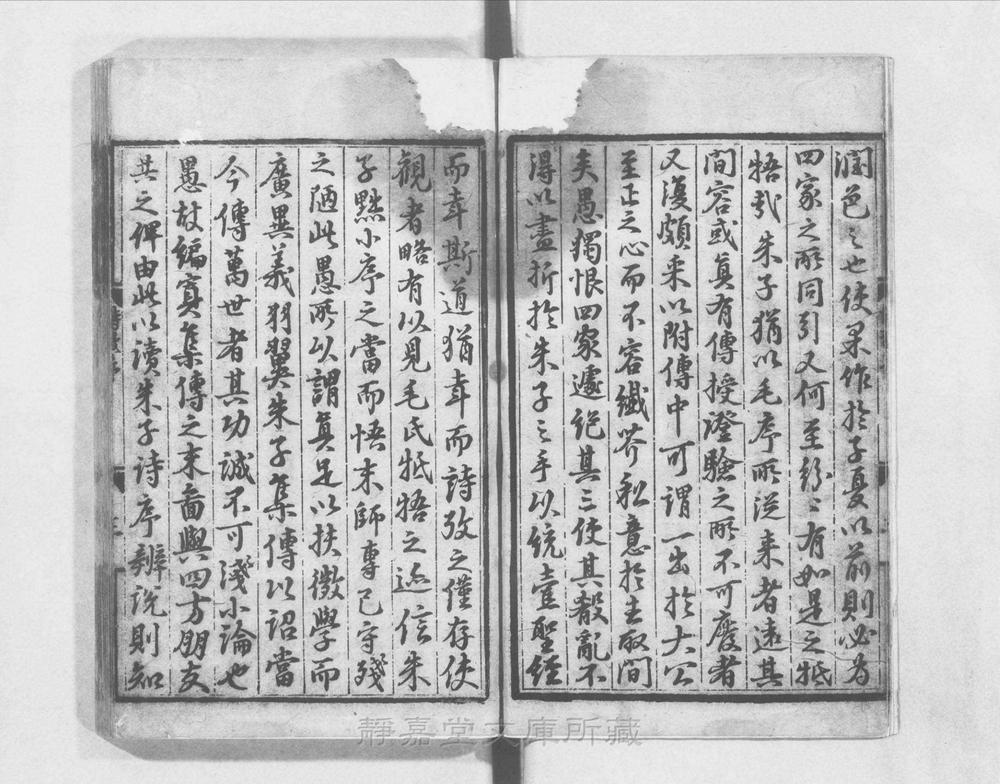 潤色之也使果作於子夏以前則必爲
四家之所同引又何至紛々有如是之牴
牾哉朱子猶以毛序所從来者遠其
間容或真有傳授證驗之所不可廢者
又復頗采以附傳中可謂一出於大公
至正之心而不容纖芥私意於去取間
矣愚獨恨四家遽絶其三使其殽亂不
得以盡折於朱子之手以統壹聖經
而幸斯道猶幸而詩攷之僅存使
觀者略有以見毛氏牴牾之迹信朱
子黜小序之當而悟末師專己守殘
之陋此愚所以謂真足以扶微學而
廣異義羽翼朱子集傳以詔當
今傳萬世者其功誠不可淺小論也
愚故編寘集傳之末啚與四方朋友
共之俾由此以讀朱子詩序辨説則知
靜嘉堂文庫所藏